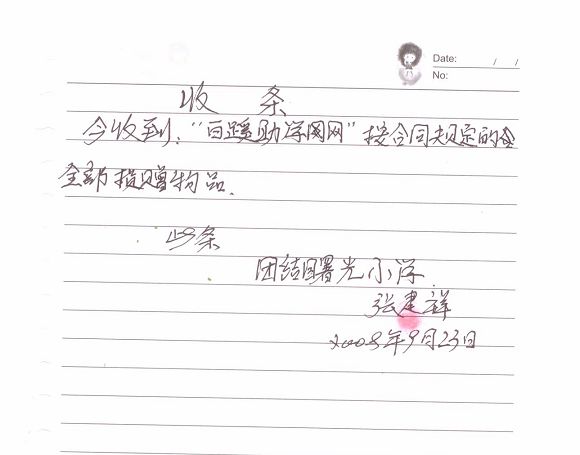 Date: / /
No:
收 条
今收到:“百蹊助学网网”按合同规定的全
全部捐赠物品.
此条
团结曙光小学.
张建祥
2008年9月23日